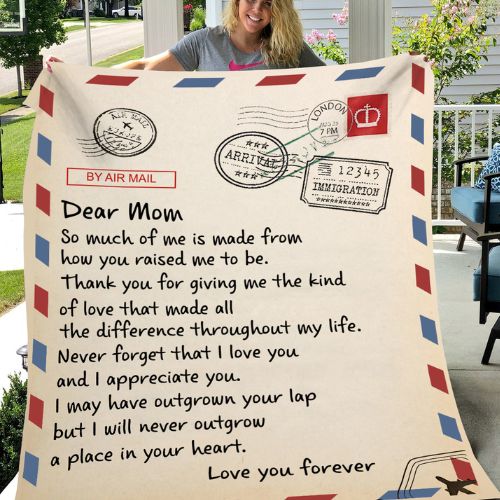 AIR MAIL
LONDON
AUG 23
7 PM
ARRIVAL
12345
IMMIGRATION
BY AIR MAIL
Dear Mom
So much of me is made from
how you raised me to be.
Thank you for giving me the kind
of love that made all
the difference throughout my life.
Never forget that I love you
and I appreciate you.
I may have outgrown your lap
but I will never outgrow
a place in your heart.
Love you forever